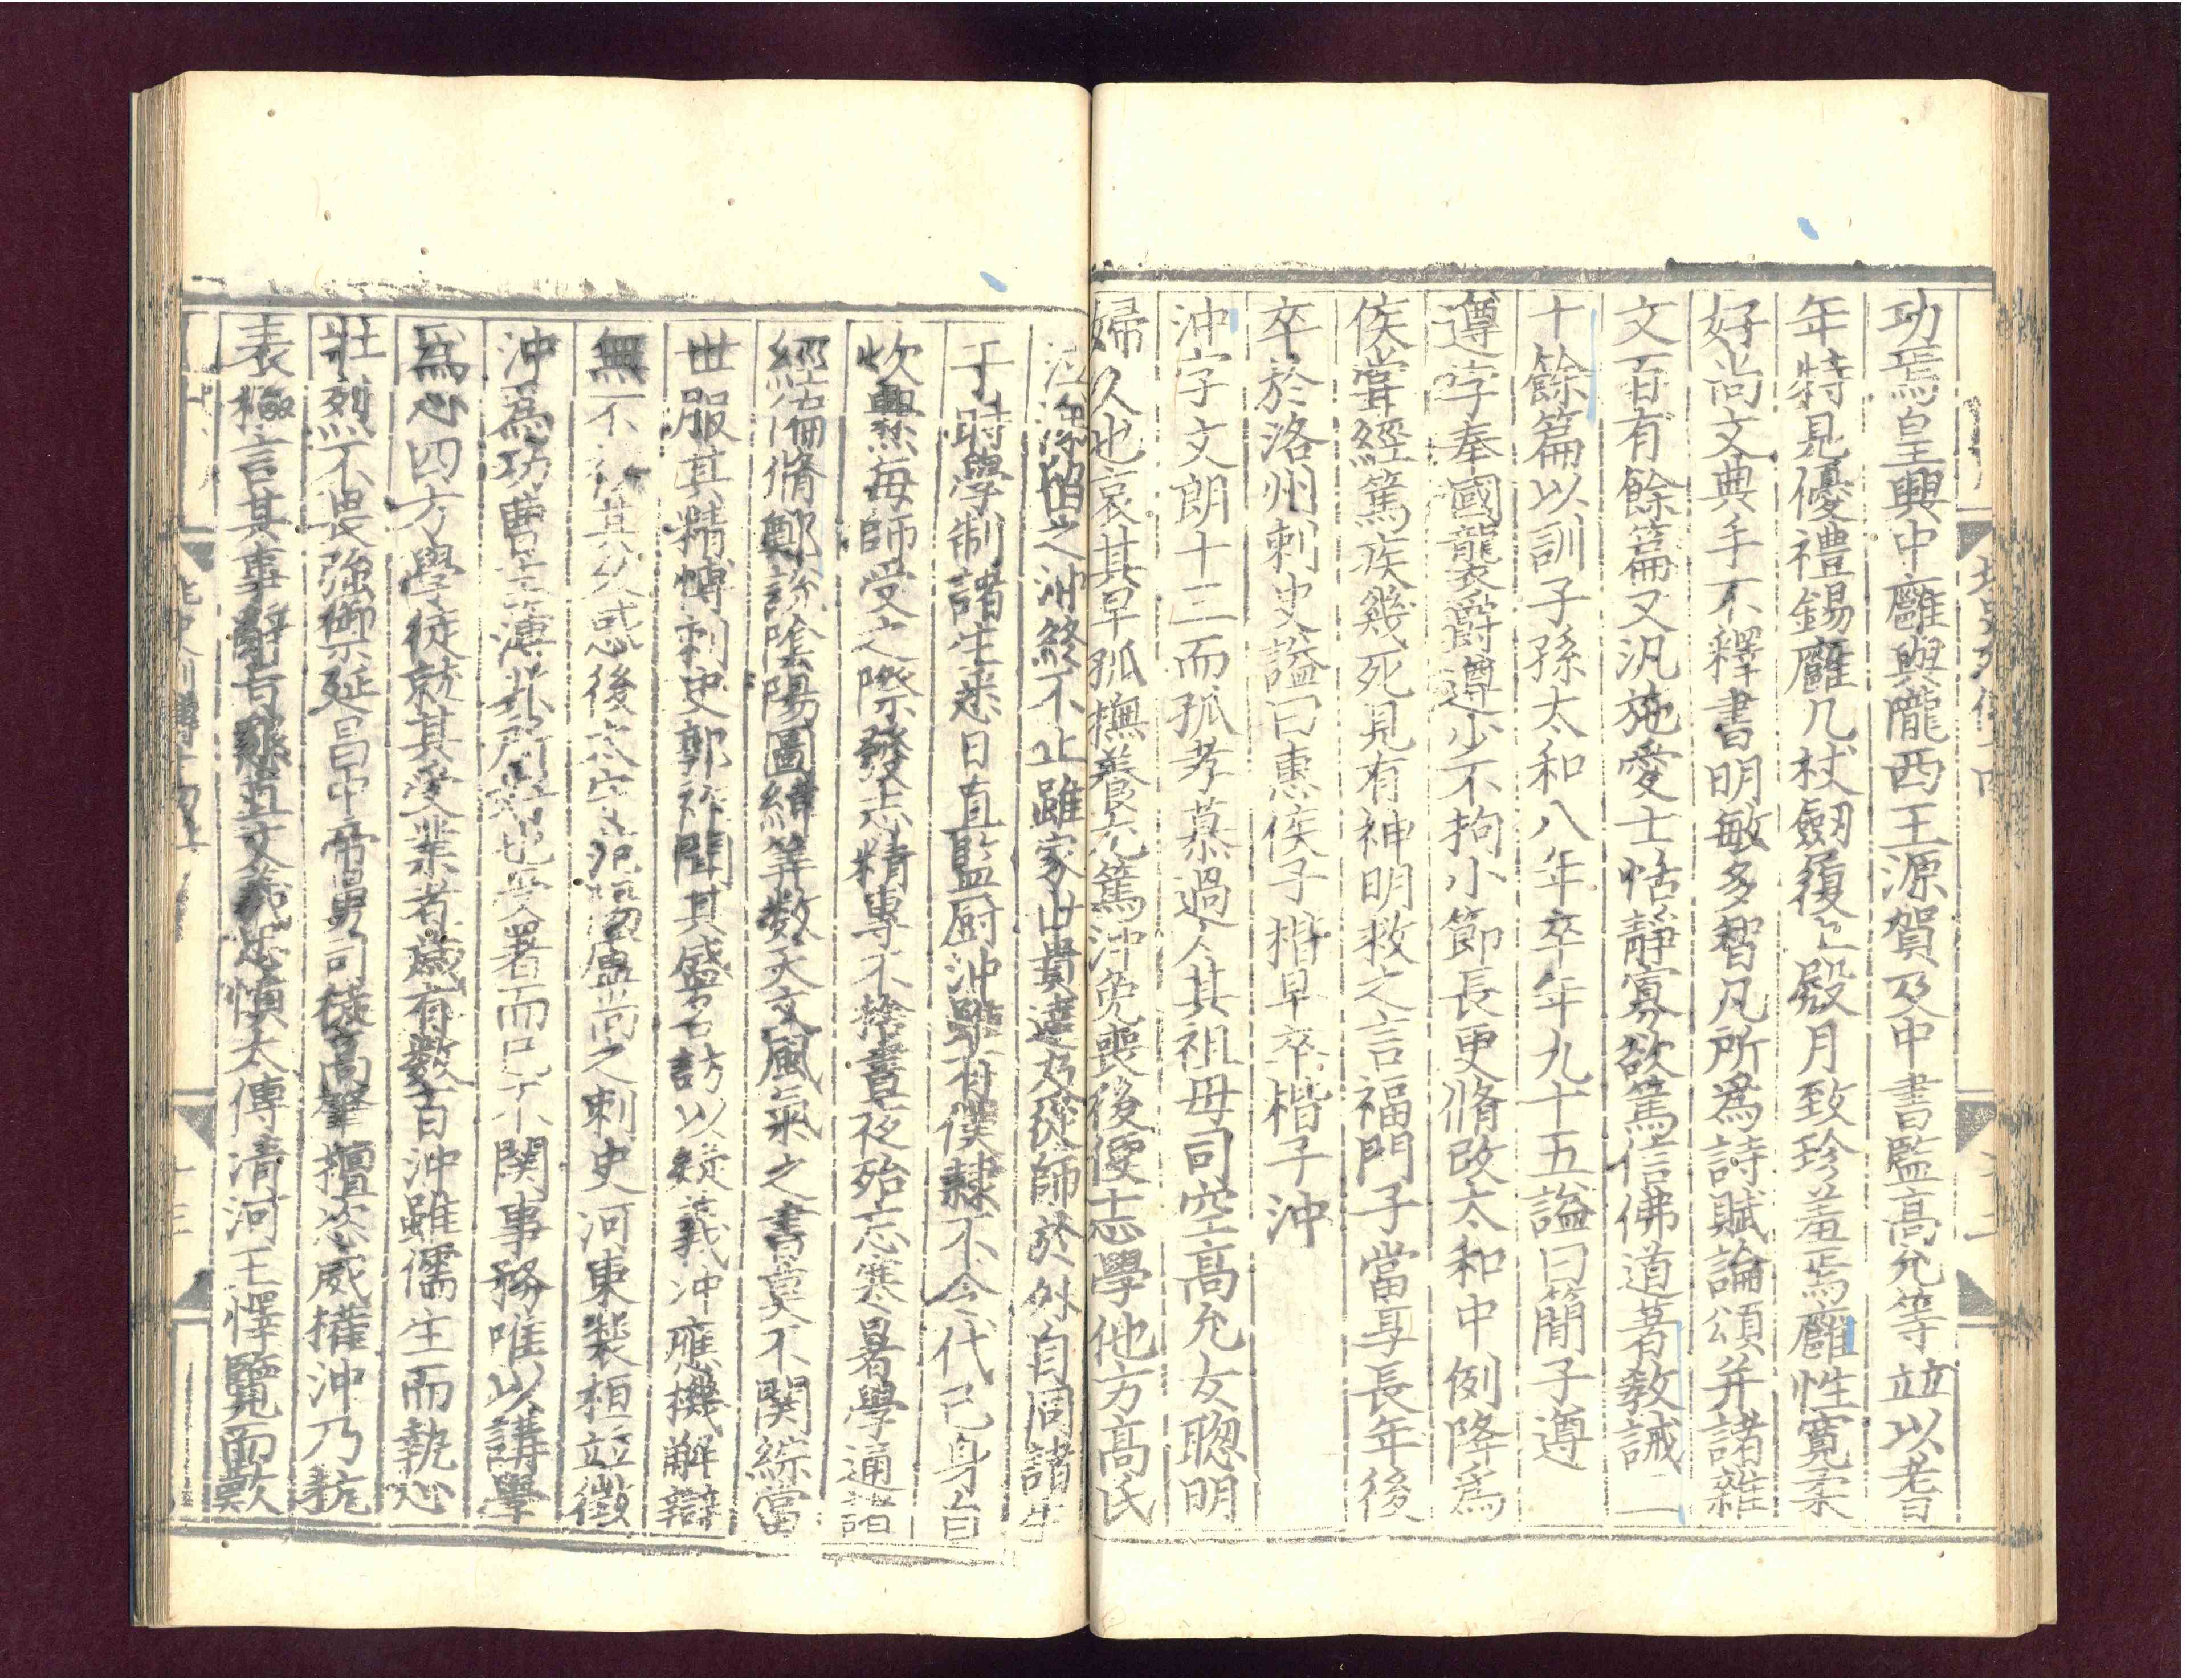 功焉皇興中雍與隴西王源賀及中書監高允等並以耆
年特見優禮錫雍几杖劒履上殿月致珍羞焉雍性寬柔
好尚文典手不釋書明敏多智凡所為詩賦論頌并諸雜
文百有餘篇又汎施愛士恬靜寡欲篤信佛道著教誡二
十餘篇以訓子孫太和八年卒年九十五謚曰簡子遵
遵字奉國襲爵遵少不拘小節長更脩改太和中例降為
侯嘗經篤疾幾死見有神明救之言福門子當享長年後
卒於洛州刺史謚曰惠侯子楷早卒楷子沖
沖字文朗十三而孤孝慕過人其祖母司空高允女聰明
婦人也哀其早孤撫養尤篤沖免喪後便志學他方高氏
泣涕留之沖終不止雖家世貴達及從師於外自同諸生
于時學制諸生悉日直監厨沖雖有僕隸不令代己身自
炊爨每師受之際發志精專不捨晝夜殆忘寒暑學通諸
經偏脩鄭說陰陽圖緯筭數天文風氣之書莫不関綜當
世服其精博刺史郭祚聞其盛名訪以疑義沖應機解辯
無不 其久惑後太守 范陽盧尚之刺史河東裴桓並徵
沖為功曹主簿非所好也受署而已不関事務唯以講學
為心四方學徒就其受業者歲有數百沖雖儒生而執心
壯烈不畏強禦延昌中帝舅司徒高肇擅恣威權沖乃抗
表極言其事辭旨懇直文義忠憤太傅清河王懌覽而歎
北史列傳十四
十三